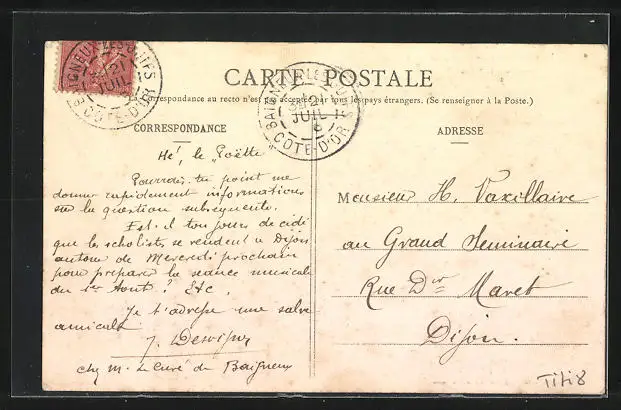 BAIGNEUX-LES-JUIFS
21
JUIL
CÔTE-D'OR
CARTE POSTALE
BAIGNEUX-LES-JUIFS
21
JUIL
6
CÔTE-D'OR
La Correspondance au recto n'est pas acceptée par tous les pays étrangers. (Se renseigner à la Poste.)
CORRESPONDANCE
Hé! le Poëtte
Pourrais-tu point me
donner rapidement informations
sur la question subséquente.
Est-il toujours décidé
que les scholistes se rendent à Dijon
autour de Mercredi prochain
pour préparer la séance musicale
du 1er Août? Etc.
Je t'adresse une salve
amicale
J.
chez M. le Curé de Baigneux
ADRESSE
Monsieur H. Vaxillaire
au Grand Seminaire
Rue Dr Maret
Dijon.